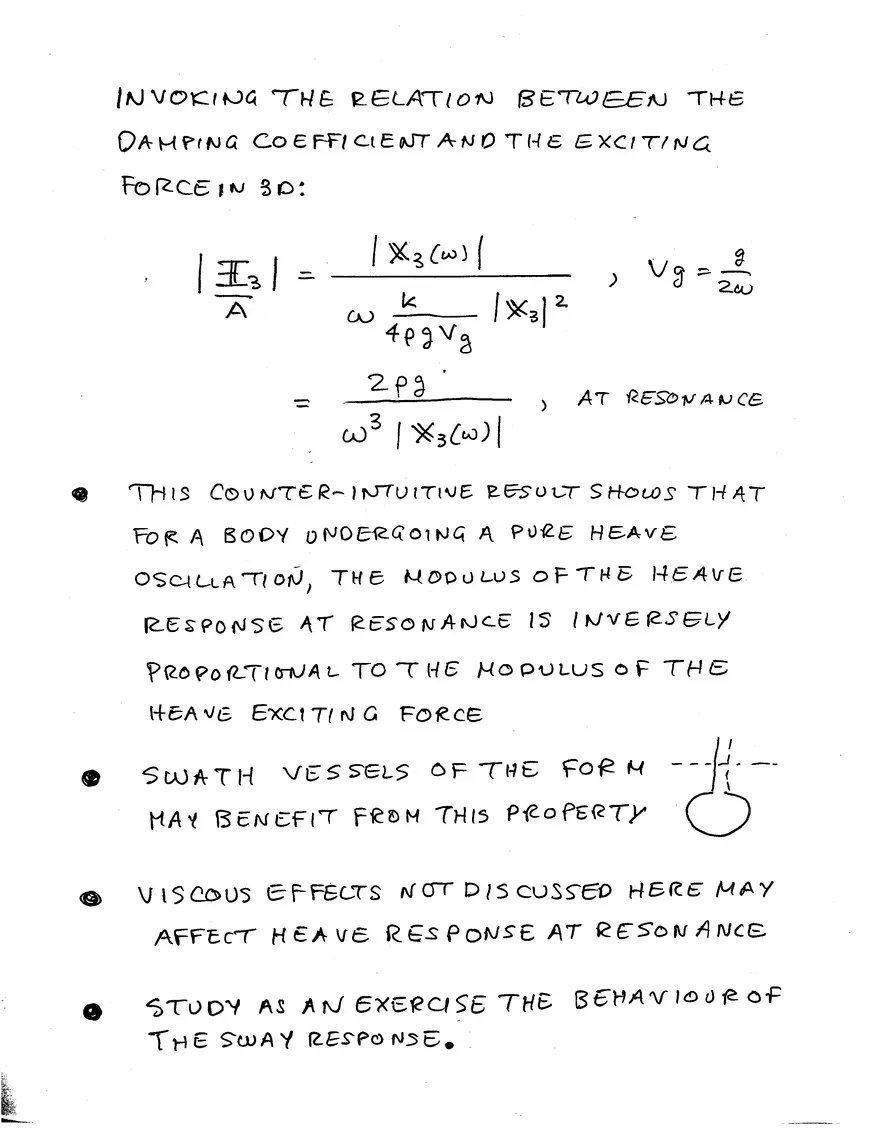 INVOKING THE RELATION BETWEEN THE
DAMPING COEFFICIENT AND THE EXCITING
FORCE IN 3D:
|Ξ₃/A| = |𝕏₃(ω)| / (ω k/(4ρgVg) |𝕏₃|²) , Vg = g/2ω
= 2ρg / (ω³ |𝕏₃(ω)|) , AT RESONANCE
• THIS COUNTER-INTUITIVE RESULT SHOWS THAT
FOR A BODY UNDERGOING A PURE HEAVE
OSCILLATION, THE MODULUS OF THE HEAVE
RESPONSE AT RESONANCE IS INVERSELY
PROPORTIONAL TO THE MODULUS OF THE
HEAVE EXCITING FORCE
• SWATH VESSELS OF THE FORM
MAY BENEFIT FROM THIS PROPERTY
• VISCOUS EFFECTS NOT DISCUSSED HERE MAY
AFFECT HEAVE RESPONSE AT RESONANCE
• STUDY AS AN EXERCISE THE BEHAVIOUR OF
THE SWAY RESPONSE.